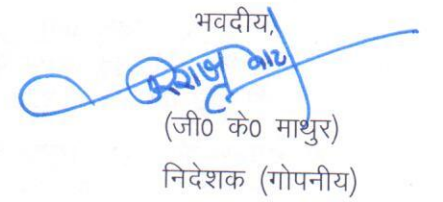 भवदीय,
(जी0 के0 माथुर)
निदेशक (गोपनीय)